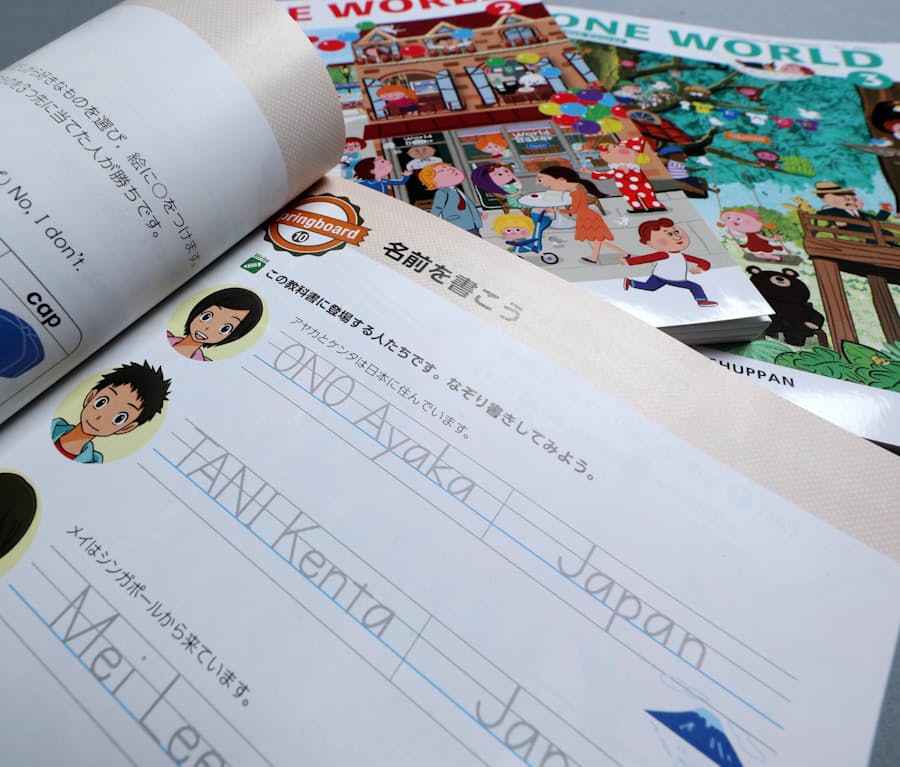 NE WORLD 2
ONE WORLD
3
World
World Bake
Open
HUPPAN
好きなものを選び，絵に○をつけます。
つ先に当てた人が勝ちです。
No, I don't.
cap
pringboard
10
名前を書こう
この教科書に登場する人たちです。なぞり書きしてみよう。
アヤカとケンタは日本に住んでいます。
ONO Ayaka Japan
TANI Kenta Jap
メイはシンガポールから来ています。
Mei Lee